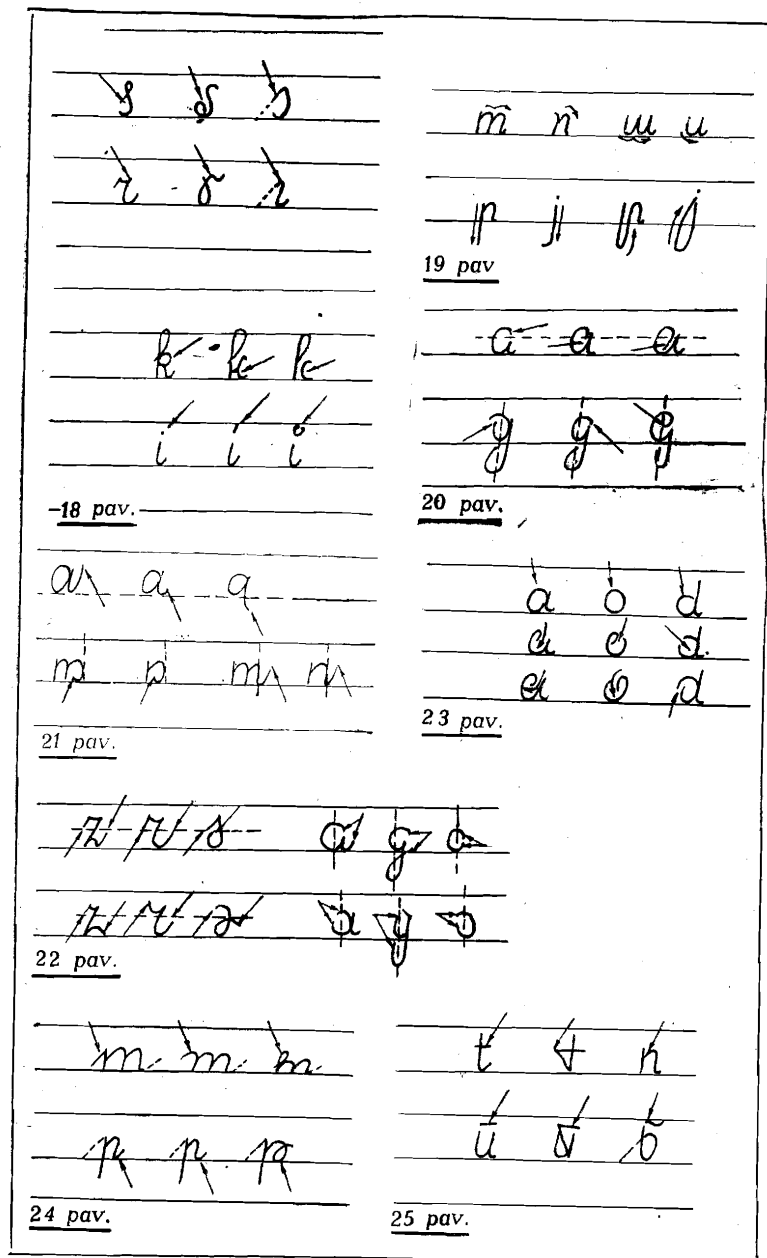 s s s
r r r
k k k
i i i
18 pav.
m n ш u
p j p j
19 pav
a a a
g g g
20 pav.
a a q
m p m n
21 pav.
a o d
a o d
a o d
23 pav.
r r s a g o
r r s a y o
22 pav.
m m m
p p p
24 pav.
t t n
ū ū o
25 pav.